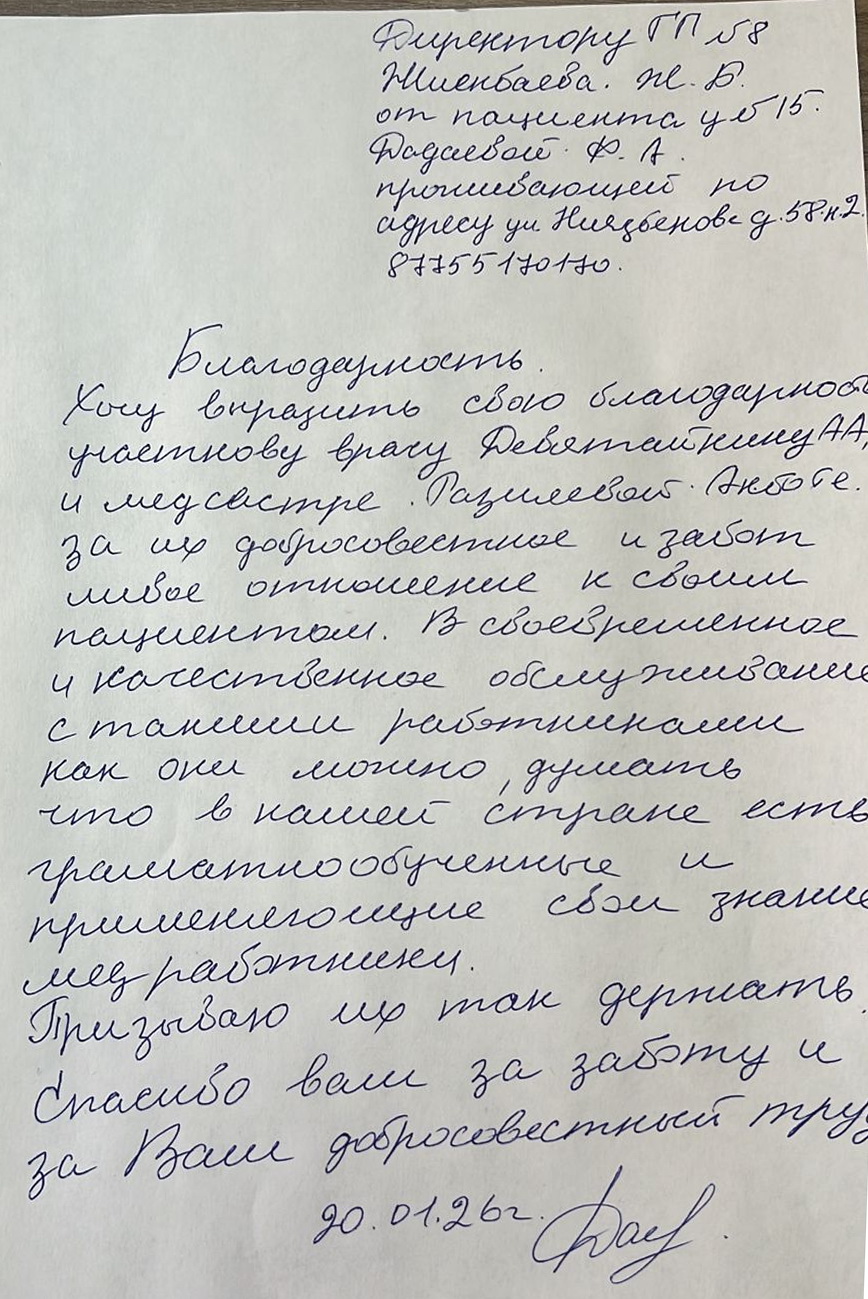 Директору ГП №8
Жиенбаева. Ж. Б.
от пациента уч 15.
Дадаевой Ф. А.
проживающей по
адресу ул Ниязбекова д. 58. к.2.
87755170170.
Благодарность.
Хочу выразить свою благодарность
участкову врачу Девятайкину АА,
и медсастре. Разилевой. Акботе.
за их добросовестное и забот
ливое отношение к своим
пациентам. В своевременное
и качественное обслуживание
с такими работниками
как они можно, думать
что в нашей стране есть
граматнообученные и
применяющие свои знание
мед работники.
Призываю их так держать.
Спасибо вам за заботу и
за Ваш добросовестный труд
20.01.26г.